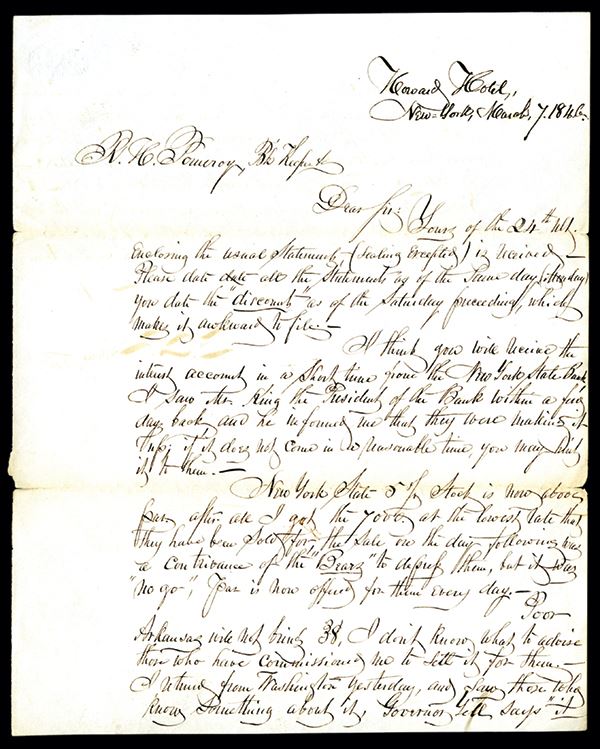 Howard Hotel,
New-York, March, 7. 1846.
R. H. Pomeroy, Bk Keeper
Dear Sir: Yours of the 24th ult.
enclosing the usual Statements, (Sealing Excepted) is received —
Please date all the Statements as of the Same day,
you date the "discounts" as of the Saturday preceeding, which
makes it awkward to file. —
I think you will receive the
interest account in a Short time from the New York State Bank
I saw Mr. King the President of the Bank within a few
days back and he informed me that they were making it
up; if it does not come in a reasonable time, you may hint
it to them. —
New York State 5 Stock is now above
par, after all I got the 7000. at the lowest rate that
they have been Sold for, the Sale on the day following was
a contrivance of the "Bears" to depress them, but it was
"no go", Par is now offered for them every day. —
Poor
Arkansas will not bring 38, I don't know what to advise
those who have commissioned me to Sell it for them. —
I returned from Washington yesterday, and Saw those who
know Something about it, Governor Yell says "it